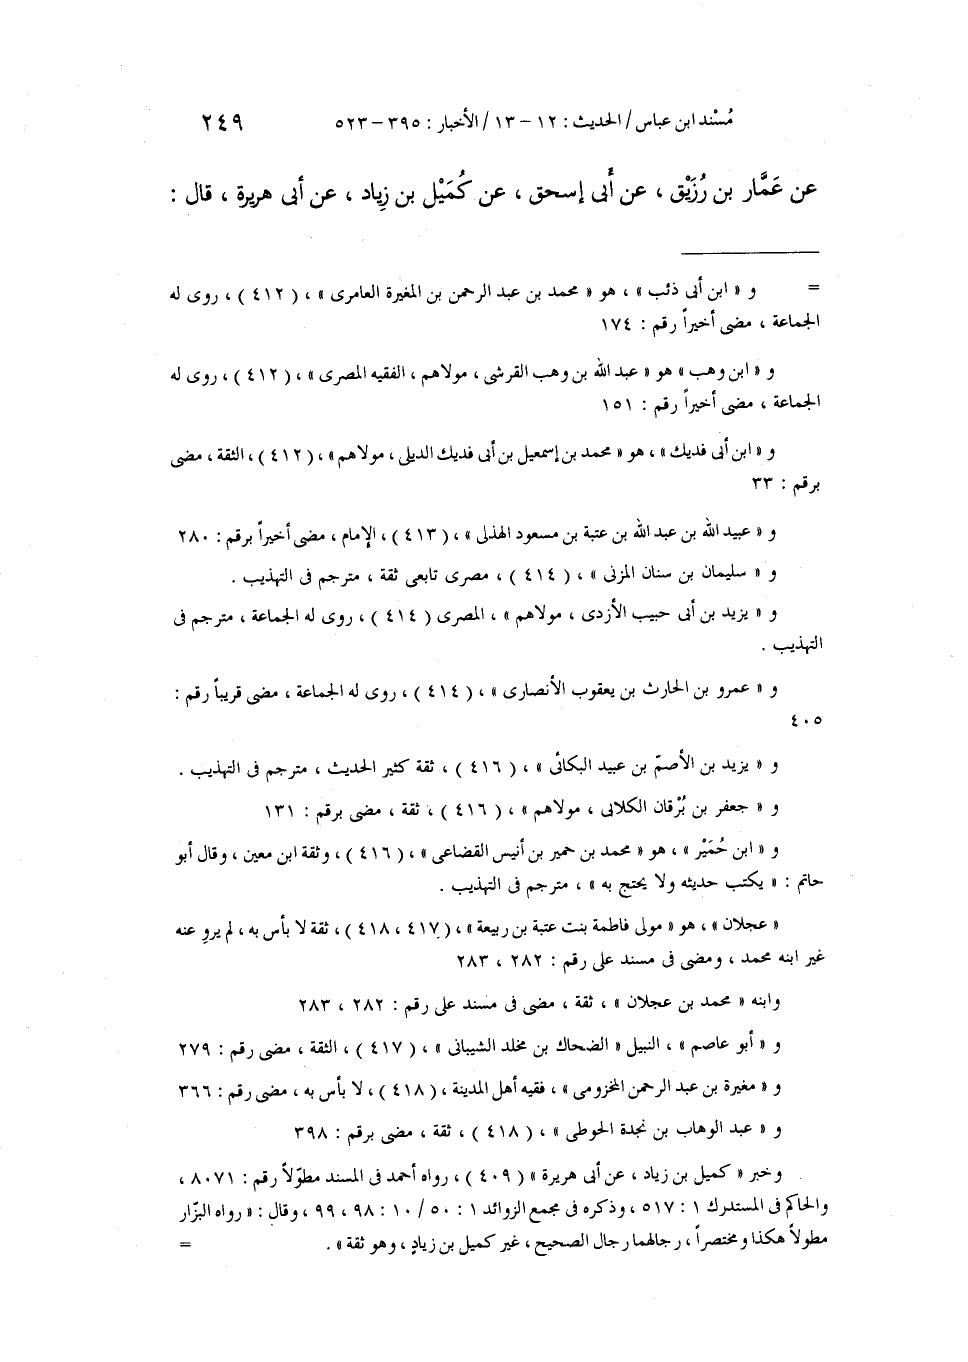 مُسْند ابن عباس / الحديث : ١٢ - ١٣ / الأخبار : ٣٩٥ - ٥٢٣ ٢٤٩
عن عَمَّار بن رُزَيْق ، عن أَبى إسحق ، عن كُمَيْل بن زِياد ، عن أبى هريرة ، قال :
= و « ابن أبى ذئب » ، هو « محمد بن عبد الرحمن بن المغيرة العامرى » ، ( ٤١٢ ) ، روى له
الجماعة ، مضى أخيراً رقم : ١٧٤
و « ابن وهب » هو « عبد الله بن وهب القرشى ، مولاهم ، الفقيه المصرى » ، ( ٤١٢ ) ، روى له
الجماعة ، مضى أخيراً رقم : ١٥١
و « ابن أبى فديك » ، هو « محمد بن إسمعيل بن أبى فديك الديلى ، مولاهم » ، ( ٤١٢ ) ، الثقة ، مضى
برقم : ٣٣
و « عبيد الله بن عبد الله بن عتبة بن مسعود الهذلى » ، ( ٤١٣ ) ، الإمام ، مضى أخيراً برقم : ٢٨٠
و « سليمان بن سنان المزنى » ، ( ٤١٤ ) ، مصرى تابعى ثقة ، مترجم فى التهذيب .
و « يزيد بن أبى حبيب الأزدى ، مولاهم » ، المصرى ( ٤١٤ ) ، روى له الجماعة ، مترجم فى
التهذيب .
و « عمرو بن الحارث بن يعقوب الأنصارى » ، ( ٤١٤ ) ، روى له الجماعة ، مضى قريباً رقم :
٤٠٥
و « يزيد بن الأصمّ بن عبيد البكائى » ، ( ٤١٦ ) ، ثقة كثير الحديث ، مترجم فى التهذيب .
و « جعفر بن بُرْقان الكلابى ، مولاهم » ، ( ٤١٦ ) ، ثقة ، مضى برقم : ١٣١
و « ابن حُمَيْر » ، هو « محمد بن حمير بن أنيس القضاعى » ، ( ٤١٦ ) ، وثقة ابن معين ، وقال أبو
حاتم : « يكتب حديثه ولا يحتج به » ، مترجم فى التهذيب .
« عجلان » ، هو « مولى فاطمة بنت عتبة بن ربيعة » ، ( ٤١٧ ، ٤١٨ ) ، ثقة لا بأس به ، لم يروِ عنه
غير ابنه محمد ، ومضى فى مسند على رقم : ٢٨٢ ، ٢٨٣
وابنه « محمد بن عجلان » ، ثقة ، مضى فى مسند على رقم : ٢٨٢ ، ٢٨٣
و « أبو عاصم » ، النبيل « الضحاك بن مخلد الشيبانى » ، ( ٤١٧ ) ، الثقة ، مضى رقم : ٢٧٩
و « مغيرة بن عبد الرحمن المخزومى » ، فقيه أهل المدينة ، ( ٤١٨ ) ، لا بأس به ، مضى رقم : ٣٦٦
و « عبد الوهاب بن نجدة الحوطى » ، ( ٤١٨ ) ، ثقة ، مضى برقم : ٣٩٨
وخبر « كميل بن زياد ، عن أبى هريرة » ( ٤٠٩ ) ، رواه أحمد فى المسند مطوّلاً رقم : ٨٠٧١ ،
والحاكم فى المستدرك ١ : ٥١٧ ، وذكره فى مجمع الزوائد ١ : ٥٠ / ١٠ : ٩٨ ، ٩٩ ، وقال : « رواه البزّار
مطولاً هكذا ومختصراً ، رجالهما رجال الصحيح ، غير كميل بن زيادٍ ، وهو ثقة » . =